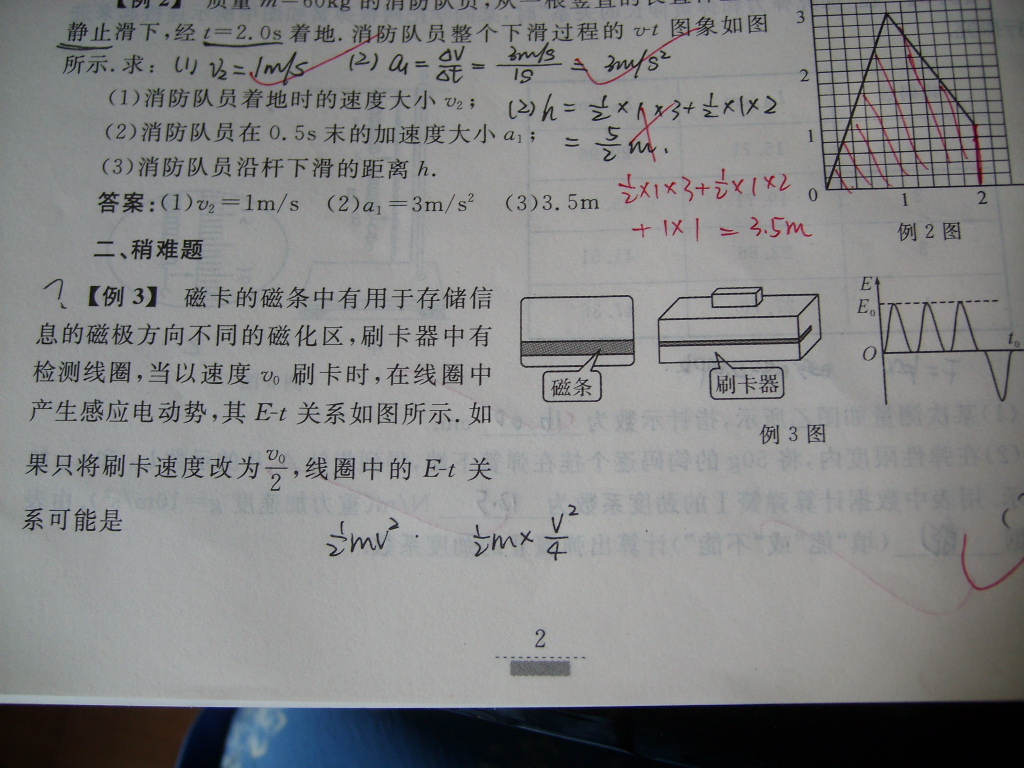 【例2】 质量 m=60kg 的消防队员,从一根竖直的长直
静止滑下,经 t=2.0s 着地.消防队员整个下滑过程的 v-t 图象如图
所示.求: (1) v₂=1m/s (2) a₁=ΔV/Δt=3m/s/1s=3m/s²
(1)消防队员着地时的速度大小 v₂;
(2)h=½×1×3+½×1×2
(2)消防队员在 0.5s 末的加速度大小 a₁;
=5/2 m.
(3)消防队员沿杆下滑的距离 h.
½×1×3+½×1×2
+1×1=3.5m
答案:(1)v₂=1m/s (2)a₁=3m/s² (3)3.5m
3
2
1
0 1 2
例2图
二、稍难题
? 【例3】 磁卡的磁条中有用于存储信
息的磁极方向不同的磁化区,刷卡器中有
检测线圈,当以速度 v₀ 刷卡时,在线圈中
产生感应电动势,其 E-t 关系如图所示.如
果只将刷卡速度改为v₀/2,线圈中的 E-t 关
系可能是
磁条
刷卡器
E
E₀
O
t₀
例3图
½mv² ½m×V²/4
2